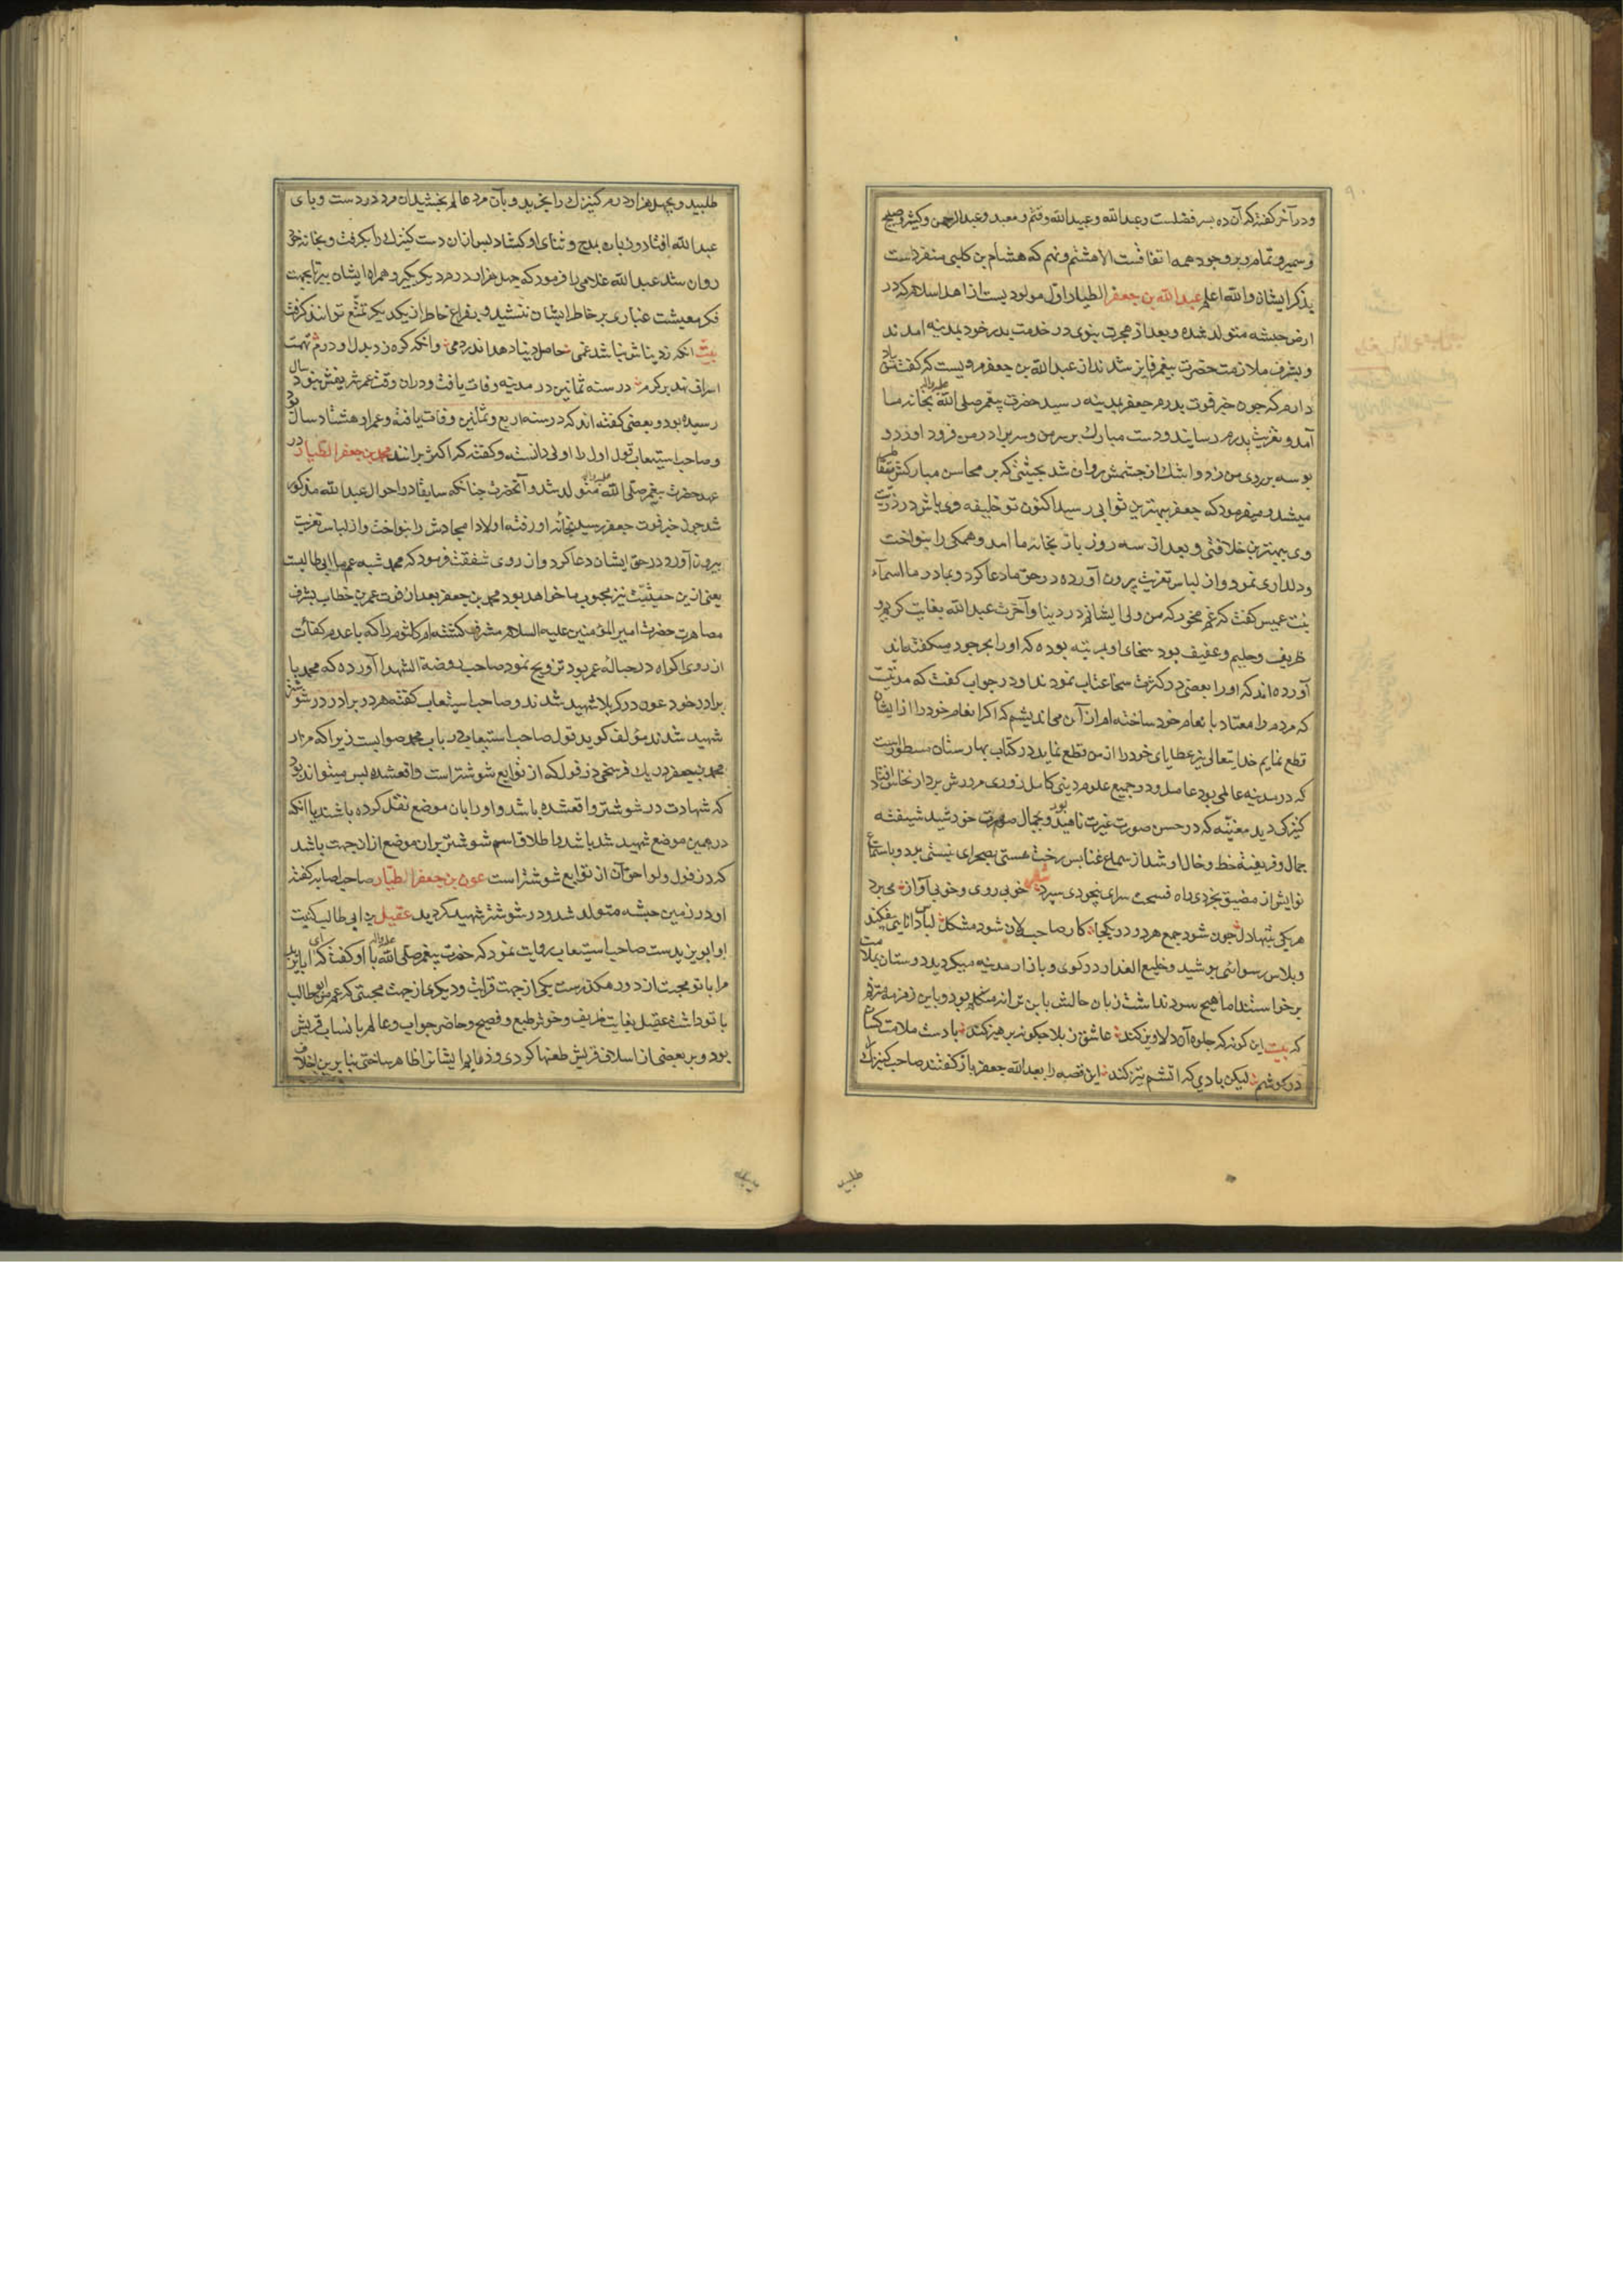 ودر آخر گفته که آن ده پسر فضلست وعبد الله وعبید الله وقثم ومعبد وعبد الرحمن وکثیر وصبیح
ومسهر وتمام وبر وجود همه اتفاقست الا هشتم ونهم که هشام بن کلبی منفردست
بذکر ایشان والله اعلم عبد الله بن جعفر الطیار اول مولودیست از اهل اسلام که در
ارض حبشه متولد شده وبعد از هجرت نبوی در خدمت پدر خود بمدینه امدند
وبشرف ملازمت حضرت پیغمبر فایز شدند از عبد الله بن جعفر مرویست که گفت من یاد
دارم که چون خبر فوت پدرم جعفر بمدینه رسید حضرت پیغمبر صلی الله علیه واله بخانه ما
آمد وتعزیت پدرم رسانید ودست مبارک بر سر من وسر برادر من فرود اورد و
بوسه بر روی من زد واشک از چشمش روان شد بحیثیتی که بر محاسن مبارکش متقاطر
میشد ومیفرمود که جعفر ببهترین ثوابی رسید اکنون تو خلیفه وی باش در ذریت
وی ببهترین خلافتی وبعد از سه روز باز بخانه ما امد وهمگی را بنواخت
ودلداری نمود واز لباس تعزیت بیرون آورده در حق ما دعا کرد وبمادر ما اسماء
بنت عمیس گفت که غم مخور که من ولی ایشانم در دنیا وآخرت عبد الله بغایت کریم و
ظریف وحلیم وعفیف بود سخای او بمرتبه بوده که اورا بحر جود میگفته اند
آورده اند که اورا بعضی در کثرت سخا عتاب نمودند او در جواب گفت که مدتیست
که مردم را معتاد بانعام خود ساخته ام از آن می اندیشم که اگر انعام خود را از ایشان
قطع نمایم خدایتعالی نیز عطایای خود را از من قطع نماید در کتاب بهارستان مسطورست
که در مدینه عالمی بود عامل ودر جمیع علوم دینی کامل روزی مرورش بر دار نخاس افتاد
کنیزکی دید مغنیه که در حسن صورت غیرت ناهید بود وبجمال صورت خورشید شیفته
جمال وفریفته خط وخال او شد از سماع غنایش رخت هستی بصحرای نیستی برد وباستماع
نوایش از مضیق بخردی راه فسحت سرای بیخودی سپرد خوبی روی وخوبی آواز میبرد
هر یکی بتنها دل چون شود جمع هر دو در یکجا کار صاحب دلان شود مشکل لباس دانایی بیفکند
وپلاس رسوائی پوشید وخلیع العذار در کوی وبازار مدینه میگردید دوستان بملامت
برخاستند اما هیچ سود نداشت زبان حالش باین ترانه متکلم بود وباین زمزمه مترنم
که بیت این گونه که جلوه آن دلاویز کند عاشق ز بلا چگونه پرهیز کند بادست ملامت کسان
در گوشم لیکن بادی که اتشم تیز کند این قصه را بعبد الله جعفر باز گفتند صاحب کنیزک را
طلبید
طلبید وبچهل هزار درم کنیزک را بخرید وبآن مرد عالم بخشید آن مرد در دست وپای
عبد الله افتاد وزبان بمدح وثنای او گشاد پس ازان دست کنیزک را بگرفت وبخانه خود
روان شد عبد الله غلامی را فرمود که چهل هزار درم دیگر بگیر وهمراه ایشان ببر تا بجهت
فکر معیشت غباری بر خاطر ایشان ننشیند وبفراغ خاطر از یکدیگر تمتع توانند گرفت
بیت انکه ز دیناش نباشد غمی حاصل دنیا دهد اندر دمی وانکه گره زد بدل او درم تهمت
اسراف نهد بر کرم در سنه ثمانین در مدینه وفات یافت ودران وقت عمر شریفش بنود سال
رسیده بود وبعضی گفته اند که در سنه اربع وثمانین وفات یافته وعمر او هشتاد سال بود
وصاحب استیعاب قول اول را اولی دانسته وگفته که اکثر برانند محمد بن جعفر الطیار در
عهد حضرت پیغمبر صلی الله علیه واله متولد شد وآنحضرت چنانکه سابقا در احوال عبد الله مذکور
شد چون خبر فوت جعفر رسید بخانه او رفته اولاد امجادش را بنواخت واز لباس تعزیت
بیرون آورد ودر حق ایشان دعا کرد واز روی شفقت فرمود که محمد شبیه عم ما ابی طالبست
یعنی ازین حیثیت نیز محبوب ما خواهد بود محمد بن جعفر بعد از فوت عمر بن خطاب بشرف
مصاهرت حضرت امیر المؤمنین علیه السلام مشرف گشته ام کلثوم را که با عدم کفائت
از روی اکراه در حباله عمر بود تزویج نمود صاحب روضة الشهدا آورده که محمد با
برادر خود عون در کربلا شهید شدند وصاحب استیعاب گفته هر دو برادر در شوشتر
شهید شدند مؤلف گوید قول صاحب استیعاب در باب محمد صوابست زیرا که مزار
محمد بن جعفر در یک فرسخی دزفول که از توابع شوشتر است واقعشده پس میتواند بود
که شهادت در شوشتر واقعشده باشد واورا بان موضع نقل کرده باشند یا انکه
در همین موضع شهید شد باشد واطلاق اسم شوشتر بران موضع ازان جهت باشد
که دزفول ولواحق آن از توابع شوشتر است عون بن جعفر الطیار صاحب اصابه گفته
او در زمین حبشه متولد شد ودر شوشتر شهید گردید عقیل بن ابی طالب کنیت
او ابو یزیدست صاحب استیعاب روایت نمود که حضرت پیغمبر صلی الله علیه واله با او گفت که ای ابا یزید
مرا با تو محبت از دو رهگذرست یکی از جهت قرابت ودیگری از جهت محبتی که عم من ابو طالب
با تو داشت عقیل بغایت ظریف وخوش طبع وفصیح وحاضر جواب وعالم بانساب قریش
بود وبر بعضی از اسلاف قریش طعنها کردی وذمایم ایشانرا ظاهر ساختی بنا برین اخلاف